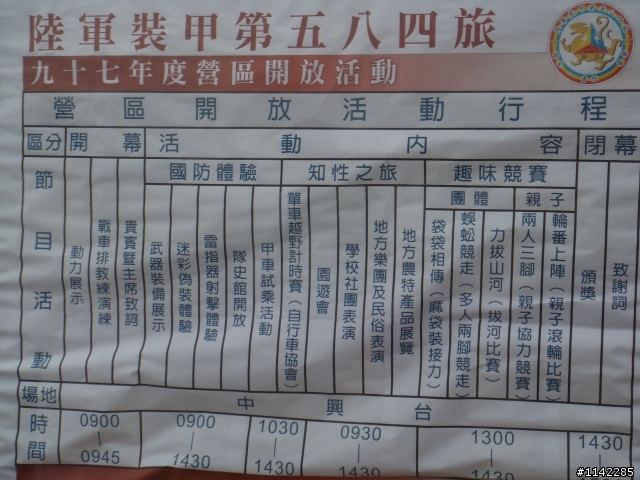 陸軍裝甲第五八四旅
九十七年度營區開放活動
營區開放活動行程
區分 開幕 活動內容 閉幕
國防體驗 知性之旅 趣味競賽
團體 親子
節目活動
動力展示
戰車排教練演練
貴賓暨主席致詞
武器裝備展示
迷彩偽裝體驗
雷指器射擊體驗
隊史館開放
甲車試乘活動
單車越野計時賽（自行車協會）
園遊會
學校社團表演
地方樂團及民俗表演
地方農特產品展覽
袋袋相傳（麻袋裝接力）
蜈蚣競走（多人兩腳競走）
力拔山河（拔河比賽）
兩人三腳（親子協力競賽）
輪番上陣（親子滾輪比賽）
頒獎
致謝詞
場地 中興台
時間
0900｜0945
0900｜1430
1030｜1430
0930｜1430
1300｜1430
1430
#1142285